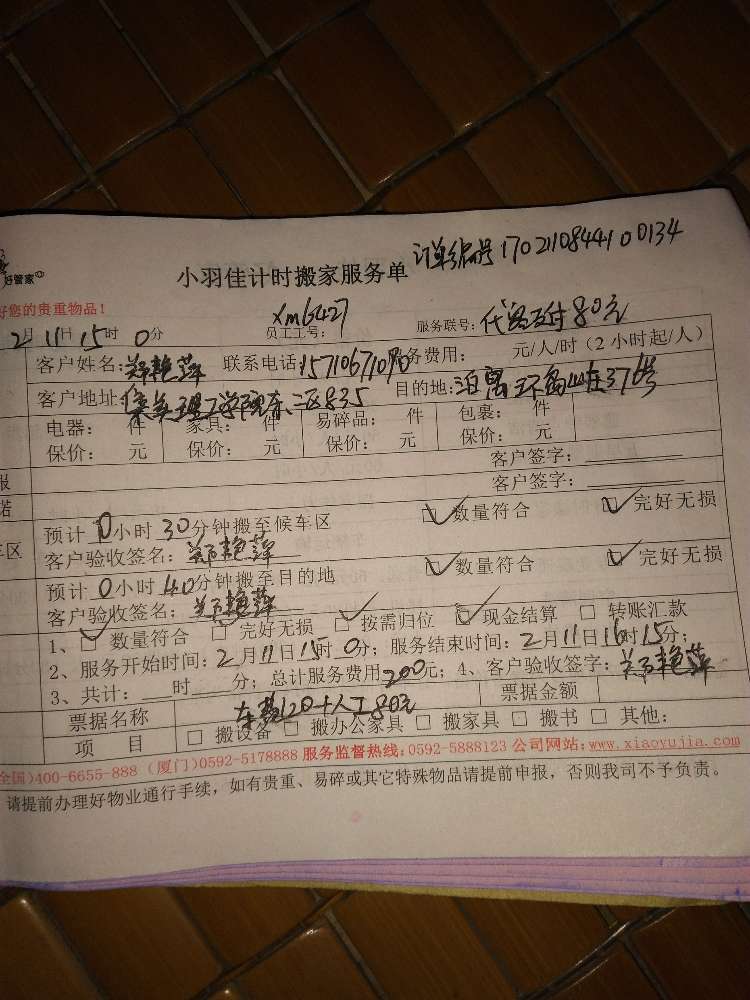 订单编号 17021108441 00134
好管家
小羽佳计时搬家服务单
好您的贵重物品!
2月11日15时0分 员工工号: xm6427 服务联号: 代客支付80元
客户姓名: 郑艳萍 联系电话: 15710671090 务费用: 元/人/时(2小时起/人)
客户地址: 集美理工学院 835 目的地: 环岛 376号
电器: 件 家具: 件 易碎品: 件 包裹: 件
保价: 元 保价: 元 保价: 元 保价: 元
客户签字:
报
客户签字:
诺
预计0小时30分钟搬至候车区 ☑数量符合 ☑完好无损
车区
客户验收签名: 郑艳萍
预计0小时40分钟搬至目的地 ☑数量符合 ☑完好无损
客户验收签名: 郑艳萍
1、☑数量符合 □完好无损 ☑按需归位 ☑现金结算 □转账汇款
2、服务开始时间: 2月11日15时0分; 服务结束时间: 2月11日16时15分;
3、共计: 时 分; 总计服务费用200元; 4、客户验收签字: 郑艳萍
票据名称 车费120+人工80元 票据金额
项目 □搬设备 □搬办公家具 □搬家具 □搬书 □其他:
全国)400-6655-888 (厦门)0592-5178888 服务监督热线:0592-5888123 公司网站:www.xiaoyujia.com
请提前办理好物业通行手续,如有贵重、易碎或其它特殊物品请提前申报,否则我司不予负责。